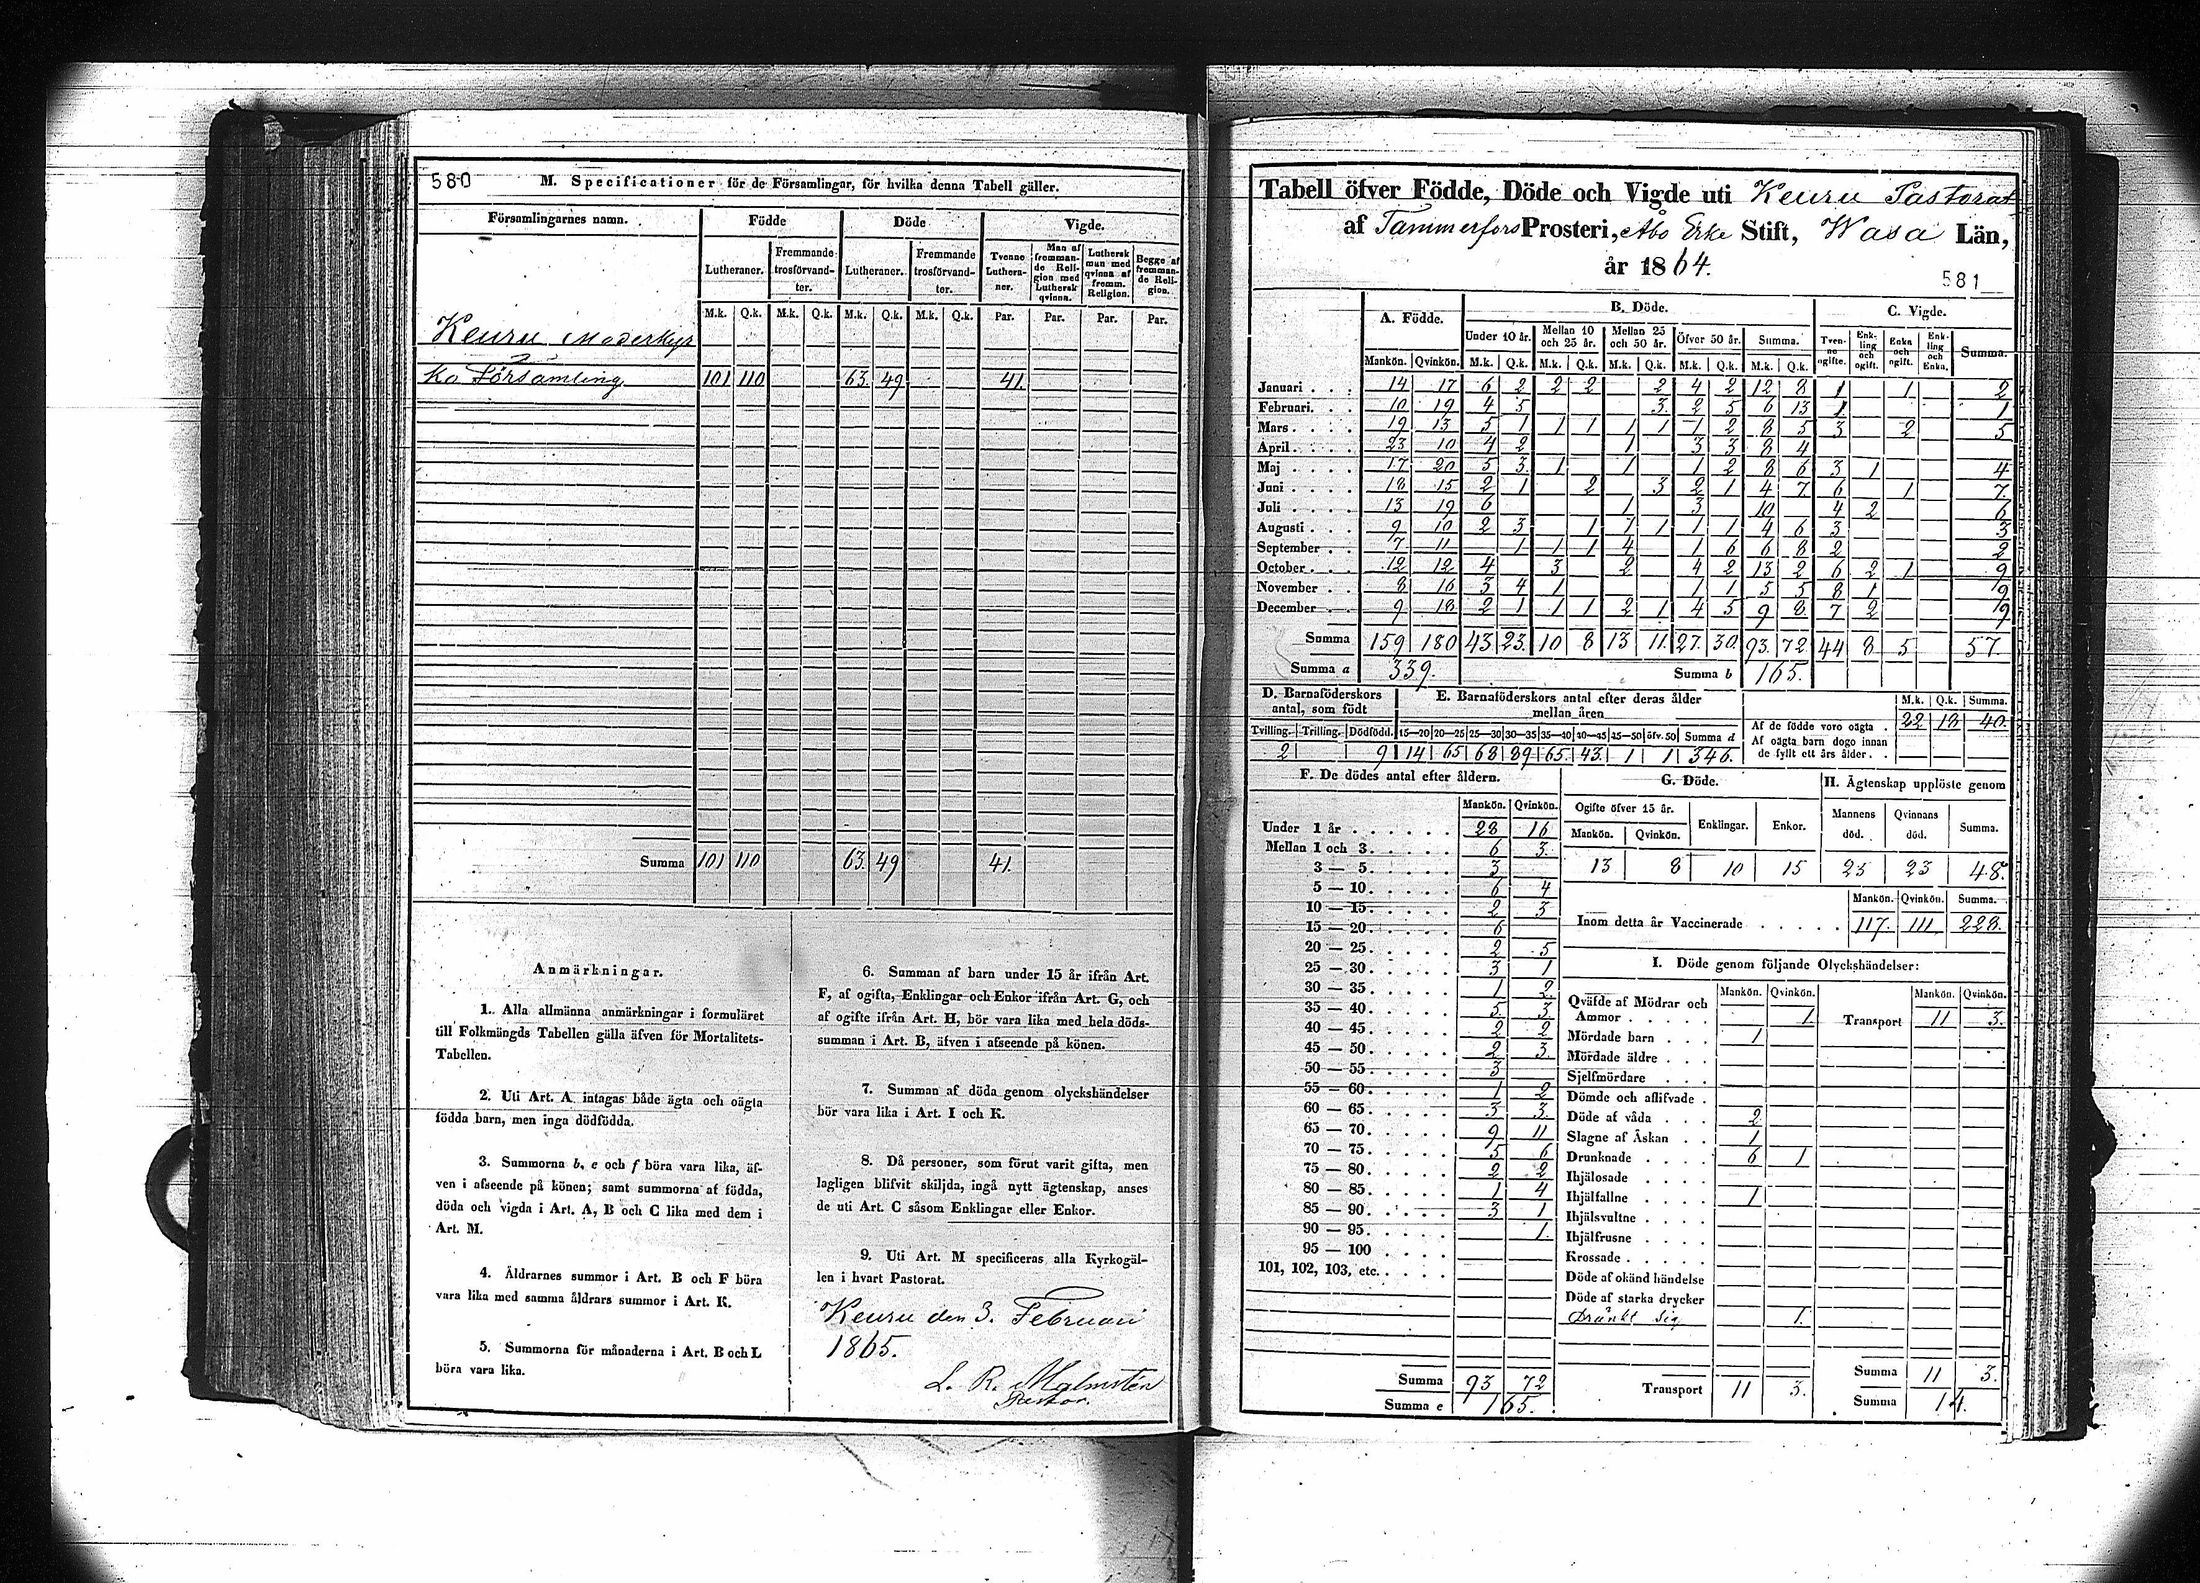 580 M. Specificationer för de Församlingar, för hvilka denna Tabell gäller.
Församlingarnes namn. Födde Döde Vigde.
Lutheraner. Fremmande trosförvandter. Lutheraner. Fremmande trosförvandter. Tvenne Lutheraner. Man af fremmande Religion med Luthersk qvinna. Luthersk man med qvinna af fremm. Religion. Begge af fremmande Religion.
M.k. Q.k. M.k. Q.k. M.k. Q.k. M.k. Q.k. Par. Par. Par. Par.
Keuru Moderkyr
ko Församling 101 110 63. 49 41.
Summa 101 110 63. 49 41.
Anmärkningar.
1. Alla allmänna anmärkningar i formuläret
till Folkmängds Tabellen gälla äfven för Mortalitets-
Tabellen.
2. Uti Art. A intagas både ägta och oägta
födda barn, men inga dödfödda.
3. Summorna b, e och f böra vara lika, äf-
ven i afseende på könen; samt summorna af födda,
döda och vigda i Art. A, B och C lika med dem i
Art. M.
4. Åldrarnes summor i Art. B och F böra
vara lika med samma åldrars summor i Art. K.
5. Summorna för månaderna i Art. B och L
böra vara lika.
6. Summan af barn under 15 år ifrån Art.
F, af ogifta, Enklingar och Enkor ifrån Art. G, och
af ogifte ifrån Art. H, bör vara lika med hela döds-
summan i Art. B, äfven i afseende på könen.
7. Summan af döda genom olyckshändelser
bör vara lika i Art. I och K.
8. Då personer, som förut varit gifta, men
lagligen blifvit skiljda, ingå nytt ägtenskap, anses
de uti Art. C såsom Enklingar eller Enkor.
9. Uti Art. M specificeras alla Kyrkogäl-
len i hvart Pastorat.
Keuru den 3. Februari
1865.
L. R. Malmstén
Pastor.
Tabell öfver Födde, Döde och Vigde uti Keuru Pastorat
af Tammerfors Prosteri, Åbo Erke Stift, Wasa Län,
år 1864.
581
A. Födde. B. Döde. C. Vigde.
Under 10 år. Mellan 10 och 25 år. Mellan 25 och 50 år. Öfver 50 år. Summa. Tvenne ogifte. Enkling och ogift. Enka och ogift. Enkling och Enka. Summa.
Mankön. Qvinkön. M.k. Q.k. M.k. Q.k. M.k. Q.k. M.k. Q.k. M.k. Q.k.
Januari 14 17 6 2 2 2 2 4 2 12 8 1 1 2
Februari. 10 19 4 5 3. 2 5 6 13 1 1
Mars 19 13 5 1 1 1 1 1 1 2 8 5 3 2 5
April 23 10 4 2 1 3 3 8 4
Maj 17 20 5 3 1 1 1 2 8 6 3 1 4
Juni 18 15 2 1 2 3 2 1 4 7 6 1 7
Juli 13 19 6 1 3 10 4 2 6
Augusti 9 10 2 3 1 1 1 1 1 4 6 3 3
September 7 11 1 1 1 4 1 6 6 8 2 2
October 12 12 4 3 2 4 2 13 2 6 2 1 9
November 8 16 3 4 1 1 1 5 5 8 1 9
December 9 18 2 1 1 1 2 1 4 5 9 8 7 2 9
Summa 159 180 43 23. 10 8 13 11. 27. 30. 93. 72 44 8 5 57.
Summa a 339. Summa b 165.
D. Barnaföderskors antal, som födt
E. Barnaföderskors antal efter deras ålder mellan åren
M.k. Q.k. Summa.
Af de födde voro oägta 22 18 40.
Af oägta barn dogo innan de fyllt ett års ålder.
Tvilling. Trilling. Dödfödd. 15—20 20—25 25—30 30—35 35—40 40—45 45—50 öfv. 50 Summa d
2 9 14 65 68 89 65. 43. 1 1 346.
F. De dödes antal efter åldern.
Mankön. Qvinkön.
Under 1 år 28 16
Mellan 1 och 3 6 3.
3 — 5 3
5 — 10 6 4
10 — 15 2 3
15 — 20 6
20 — 25 2 5
25 — 30 3 1
30 — 35 1 2
35 — 40 5 3
40 — 45 2 2
45 — 50 2 3
50 — 55 3
55 — 60 1 2
60 — 65 3 3
65 — 70 9 11
70 — 75 5 6
75 — 80 2 2
80 — 85 1 4
85 — 90 3 1
90 — 95 1.
95 — 100
101, 102, 103, etc.
Summa 93 72
Summa e 165.
G. Döde.
Ogifte öfver 15 år. Enklingar. Enkor.
Mankön. Qvinkön.
13 8 10 15
H. Ägtenskap upplöste genom
Mannens död. Qvinnans död. Summa.
25 23 48.
Mankön. Qvinkön. Summa.
Inom detta år Vaccinerade 117. 111 228.
I. Döde genom följande Olyckshändelser:
Mankön. Qvinkön. Mankön. Qvinkön.
Qväfde af Mödrar och Ammor 1. Transport 11 3.
Mördade barn 1
Mördade äldre
Sjelfmördare
Dömde och aflifvade
Döde af våda 2
Slagne af Åskan 1
Drunknade 6 1
Ihjälosade
Ihjälfallne 1
Ihjälsvultne
Ihjälfrusne
Krossade
Döde af okänd händelse
Döde af starka drycker
Dränkt sig 1.
Summa 11 3.
Transport 11 3. Summa 14.